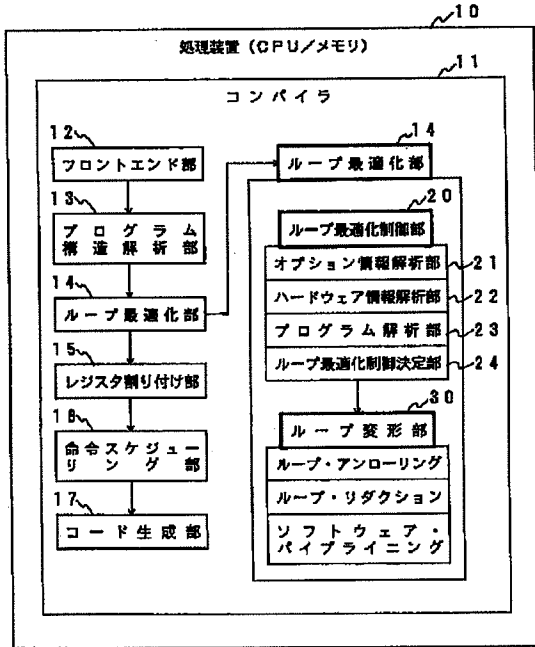 10
処理装置（CPU／メモリ）
11
コンパイラ
12
フロントエンド部
13
プログラム
構造解析部
14
ループ最適化部
15
レジスタ割り付け部
16
命令スケジュー
リング部
17
コード生成部
14
ループ最適化部
20
ループ最適化制御部
オプション情報解析部 21
ハードウェア情報解析部 22
プログラム解析部 23
ループ最適化制御決定部 24
30
ループ変形部
ループ・アンローリング
ループ・リダクション
ソフトウェア・
パイプライニング